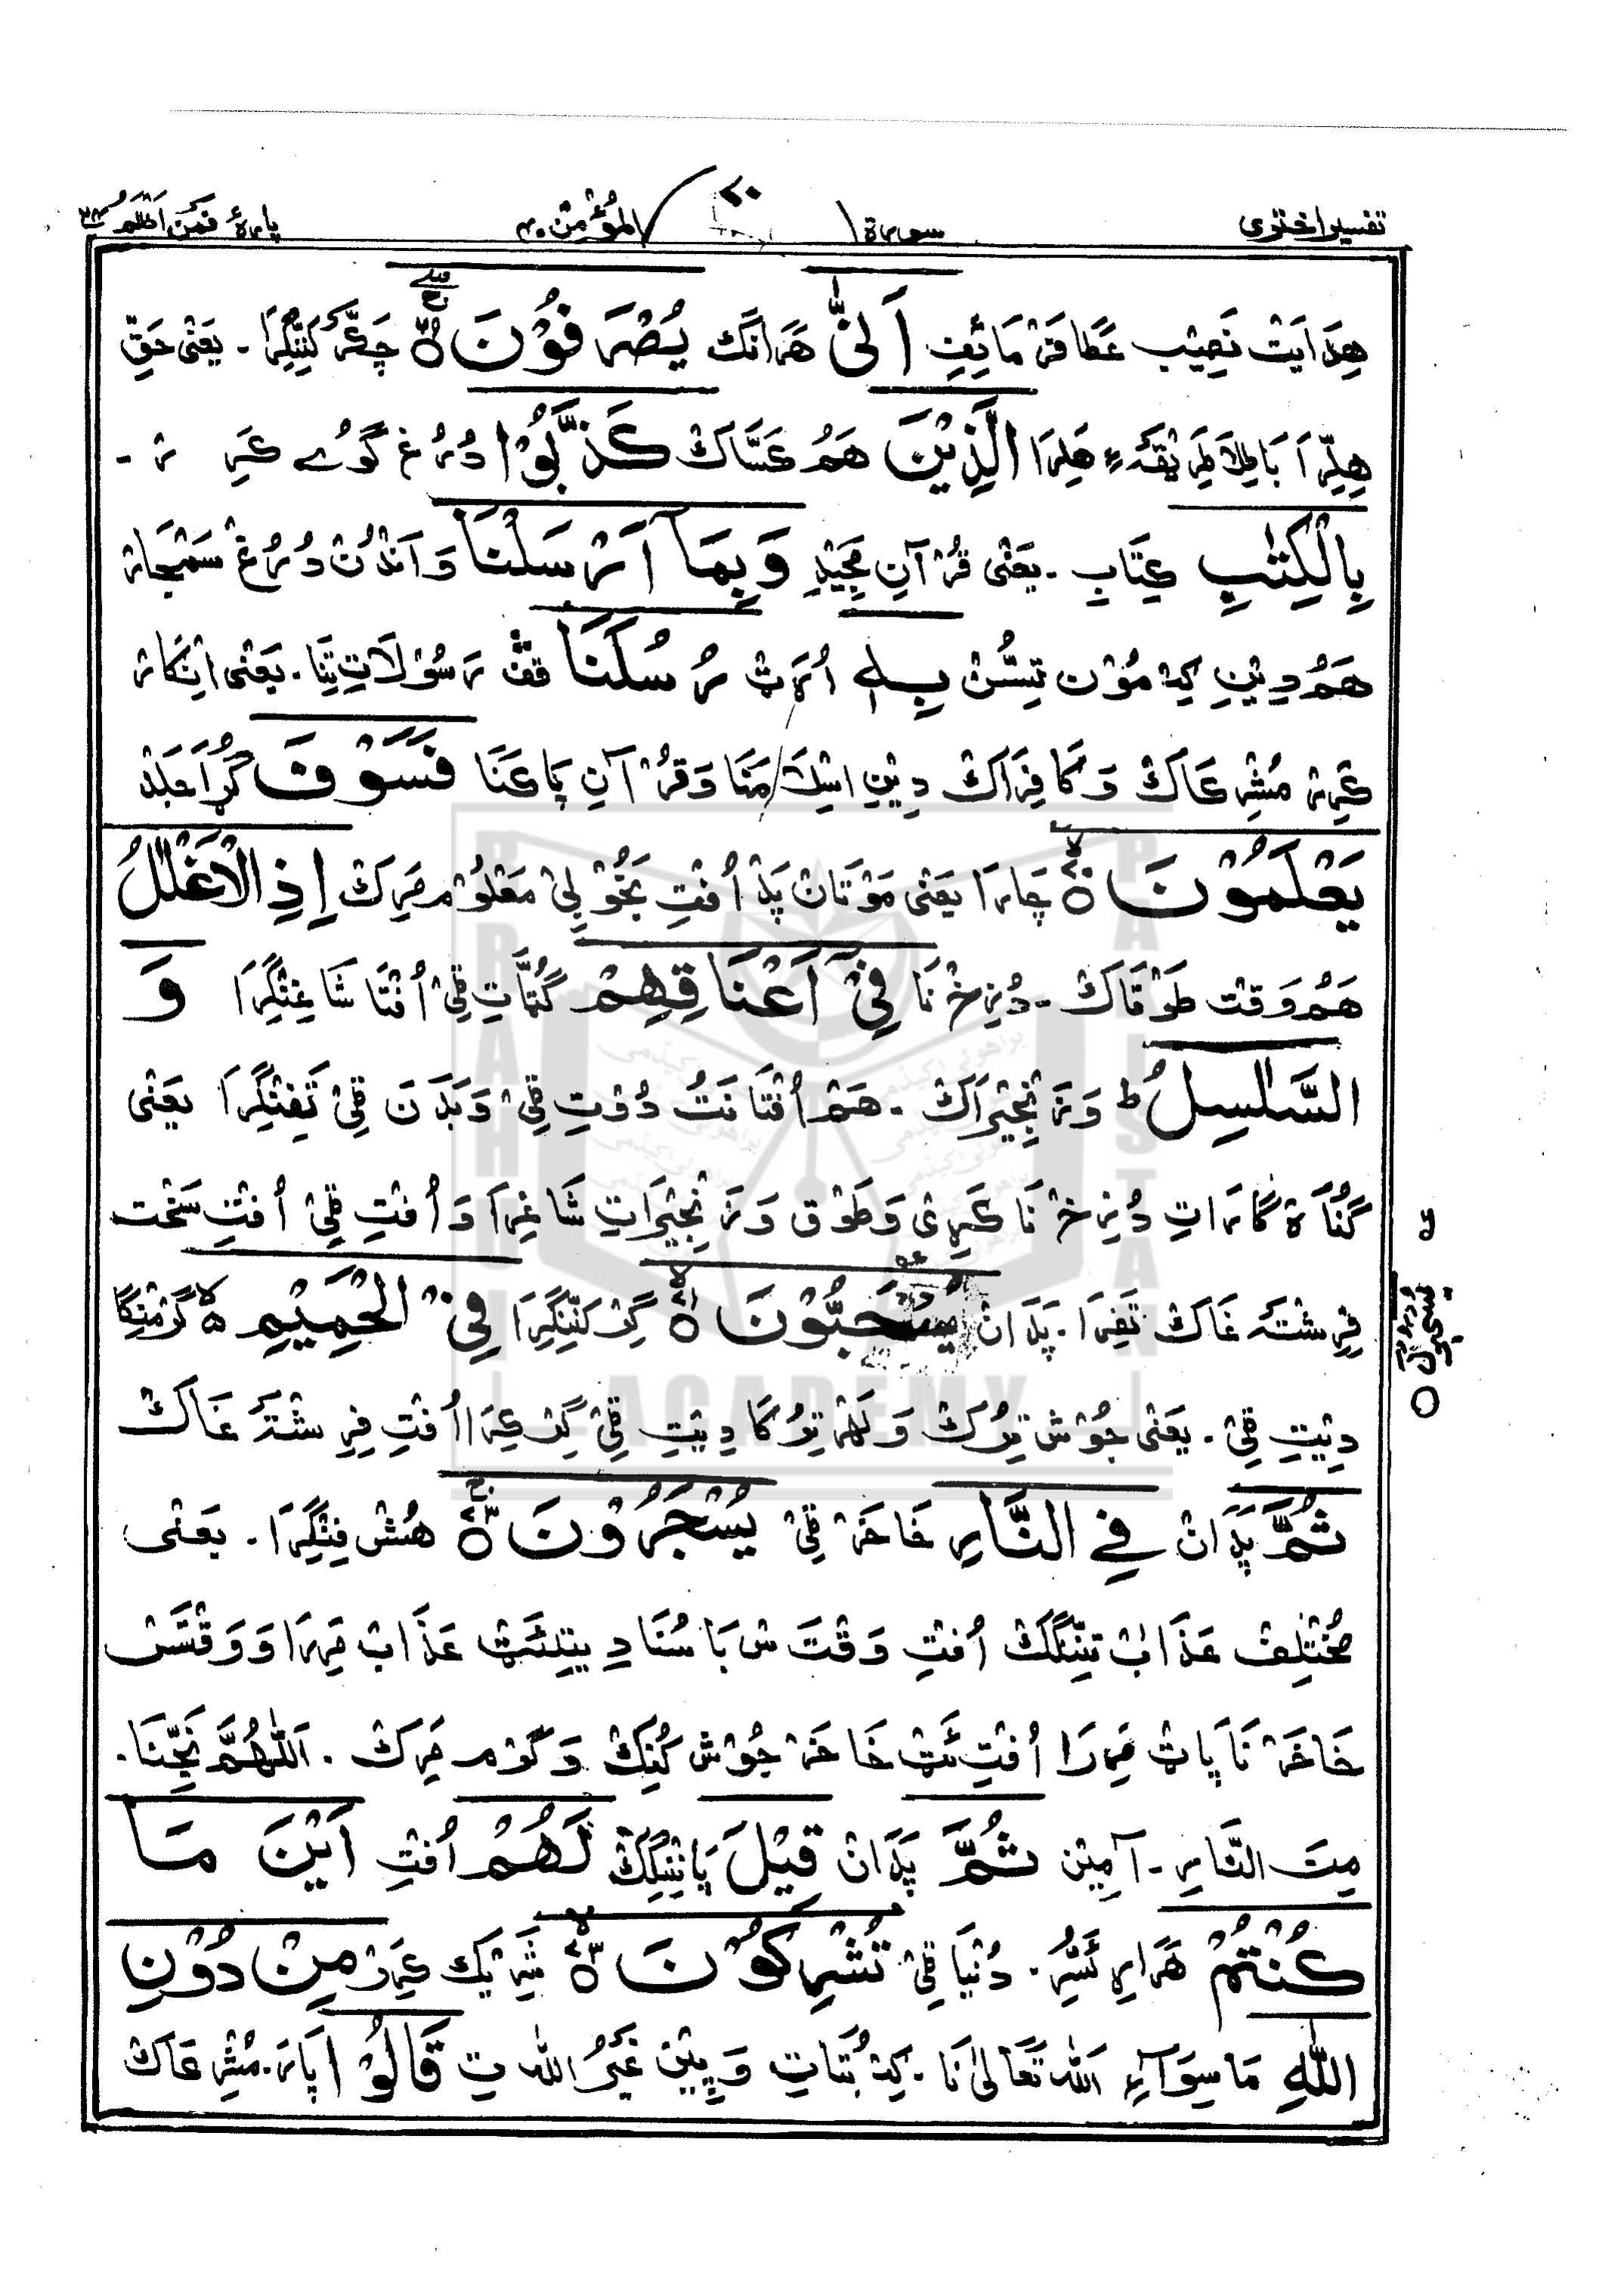 تفسیر اختری سورة المؤمن ۴۰ ۲۰ پارۂ فمن اظلم ۲۴
هِدَایَتْ نَصِیْب عَطَا فَرْمَائِفِ اَنّٰی هَرَانْگ یُصْرَفُوْنَ ۝۶۹ چَکَّرْ کَنِّنْگِرَا ۔ یَعْنٰی حَقِّ
هِلِّرَا بَاطِلَا طَرِیْقَهءِ هَلِرَا الَّذِیْنَ هَمُ کَسَّاکْ کَذَّبُوْا دُرُغ گوُے کَرِ رْ ۔
بِالْکِتٰبِ کِتَابِ ۔ یَعْنٰی قُرْآنِ مَجِیْدِ وَبِمَآ اَرْسَلْنَا وَ اَنْدُنْ دُرُغْ سَمْجَارْ
هَمُ دِیْنِ کِهْ مُوْن تِسُّنْ بِهٖ اُرَٹْ رُسُلَنَا قف رَسُوْلَاتِ تِنَا ۔ یَعْنٰی اِنْکَارْ
کَرِرْ مُشْرِکَاکْ وَکَافِرَاکْ دِیْنِ اِسْلَامَنَا وَقُرْآنِ پَاکَنَا فَسَوْفَ گُڑَا جَلْدْ
یَعْلَمُوْنَ ۝۷۰ چَارَا یَعْنٰی مَوْتَانْ پَدْ اُفْتِ بَخُوْبِیْ مَعْلُوْم مَرِکْ اِذِ الْاَغْلٰلُ
هَمُ وَقْت طَوْقَاکْ ۔ دُزِخْ نَا فِیْ اَعْنَاقِهِمْ گُٹَّاتِ قِیْ اُفْتَا شَاغِنْگِرَا وَ
السَّلٰسِلُ ط وَزَنْجِیْرَاکْ ۔ هَمْ اُفْتَا نَتُ دُوْتِ قِیْ وَبَدَنَ قِیْ تَفِنْگِرَا یَعْنٰی
گُنَاهْ گَارَاتِ دُزِخْ نَا کَڑِیْ وَطَوْق وَزَنْجِیْرَاتِ شَاغِرَا وَاُفْتِ قِیْ اُفْتِ سَخْت
فِرِشْتَهْ غَاکْ تَفِرَا ۔ پَدَانْ یُسْحَبُوْنَ ۝۷۱ کَنِّنْگِرَا فِی الْحَمِیْمِ ۵ گَرْمَنْگَا
دِیْتِ قِیْ ۔ یَعْنٰی جُوْش تِرُکْ وَ لَهْرْ تِرُکَا دِیْتِ قِیْ کِرَا اُفْتِ فِرِشْتَهْ غَاکْ
ثُمَّ پَدَانْ فِی النَّارِ خَاخَرْ قِیْ یُسْجَرُوْنَ ۝۷۲ هُشْ فِنْگِرَا ۔ یَعْنٰی
مُخْتَلِفْ عَذَابْ تِنِنْگَکْ اُفْتِ وَقْتَ س بَاسُنَا دِیتِئَٹْ عَذَابْ مَرِرَا وَ وَقْتَّسْ
خَاخَرْ نَا پَاٹْ مَرِرَا اُفْتِ ئَٹْ خَاخَرْ جُوْش کُنِکْ وَ گَوْم مَرِکْ ۔ اَللّٰهُمَّ نَجِّنَا ۔
مِنَ النَّارِ ۔ آمِیْن ثُمَّ پَدَانْ قِیْلَ پَانِنْگِکْ لَهُمْ اُفْتِ اَیْنَ مَا
کُنْتُمْ هَرَارِ ئَسُّرِ ۔ دُنْیَا قِیْ تُشْرِکُوْنَ ۝۷۳ شَرِیْک کَرِرْ مِنْ دُوْنِ
اللّٰهِ مَاسِوَآءِ اَللّٰهْ تَعَالٰی نَا ۔ کِهْ بُتَاتِ وَ پِیْن غَیْرُ اللّٰه تِ قَالُوْا پَارَ ۔ مُشْرِکَاکْ